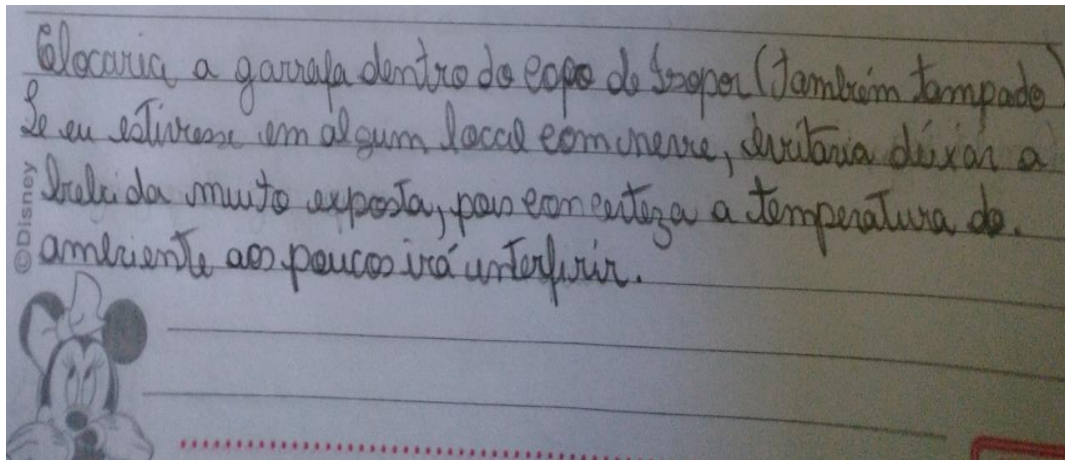 Colocaria a garrafa dentro do copo de Isopor (também tampado)
Se eu estivesse em algum local com neve, evitaria deixar a
bebida muito exposta, pois com certeza a temperatura do.
ambiente aos poucos irá interferir.
©Disney